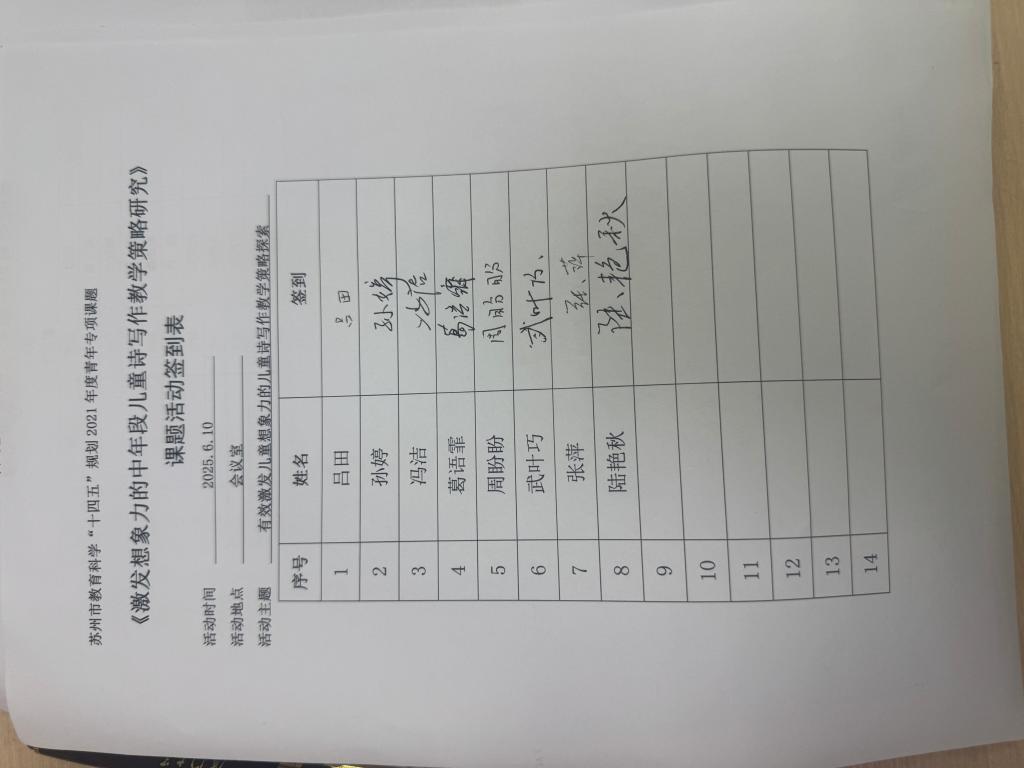 苏州市教育科学“十四五”规划2021年度青年专项课题
《激发想象力的中年段儿童诗写作教学策略研究》
课题活动签到表
活动时间 2025.6.10
活动地点 会议室
活动主题 有效激发儿童想象力的儿童诗写作教学策略探索
序号 姓名 签到
1 吕田 吕田
2 孙婷 孙婷
3 冯洁 冯洁
4 葛语霏 葛语霏
5 周盼盼 周盼盼
6 武叶巧 武叶巧
7 张萍 张萍
8 陆艳秋 陆艳秋
9
10
11
12
13
14